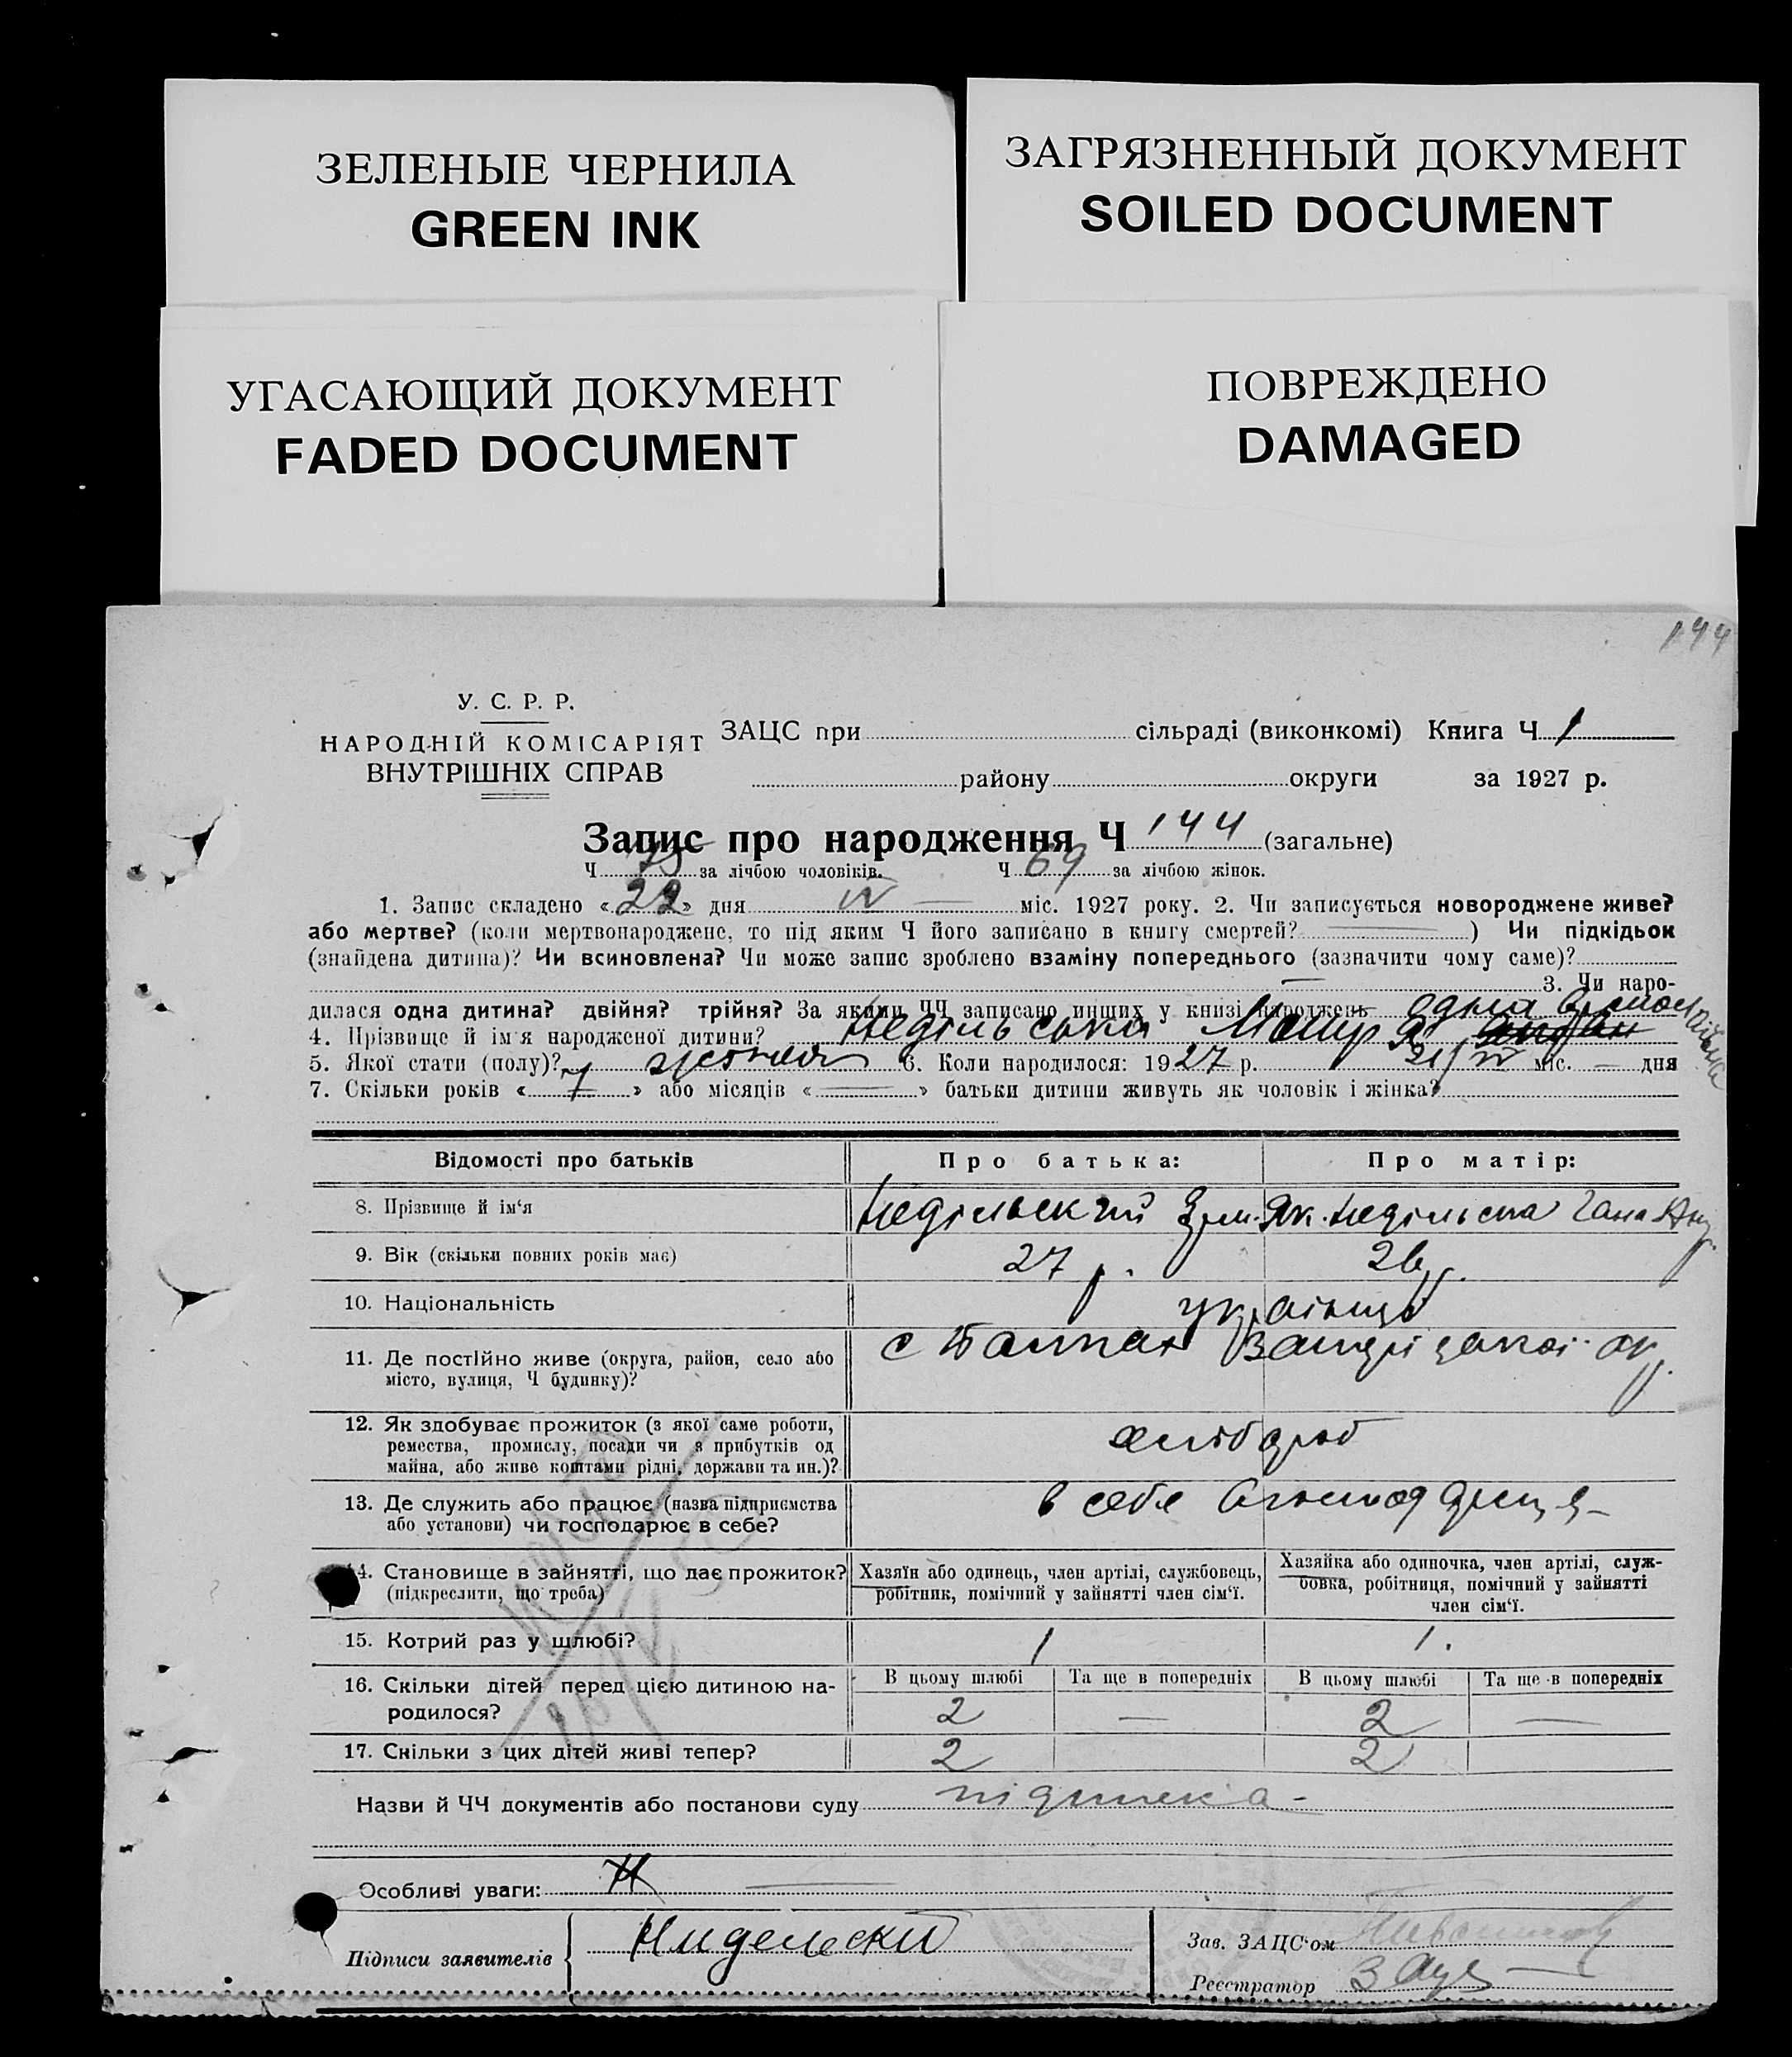 ЗЕЛЕНЫЕ ЧЕРНИЛА
GREEN INK
ЗАГРЯЗНЕННЫЙ ДОКУМЕНТ
SOILED DOCUMENT
УГАСАЮЩИЙ ДОКУМЕНТ
FADED DOCUMENT
ПОВРЕЖДЕНО
DAMAGED
144
У. С. Р. Р.
НАРОДНІЙ КОМІСАРІЯТ
ВНУТРІШНІХ СПРАВ
ЗАЦС при сільраді (виконкомі) Книга Ч 1
району округи за 1927 р.
Запис про народження Ч 144 (загальне)
Ч 75 за лічбою чоловіків. Ч 69 за лічбою жінок.
1. Запис складено «22» дня IV — міс. 1927 року. 2. Чи записується новороджене живе?
або мертве? (коли мертвонароджене, то під яким Ч його записано в книгу смертей? ) Чи підкідьок
(знайдена дитина)? Чи всиновлена? Чи може запис зроблено взаміну попереднього (зазначити чому саме)?
— 3. Чи наро-
дилася одна дитина? двійня? трійня? За якими ЧЧ записано инших у книзі народжень одна
4. Прізвище й ім'я народженої дитини? Недільська
5. Якої стати (полу)? 6. Коли народилося: 1927 р. 21/IV міс. — дня
7. Скільки років «7» або місяців «—» батьки дитини живуть як чоловік і жінка?
Відомості про батьків
Про батька:
Про матір:
8. Прізвище й ім'я
Недільский Як. Недільска Гана
9. Вік (скільки повних років має)
27 р. 26 р.
10. Національність
українці
11. Де постійно живе (округа, район, село або
місто, вулиця, Ч будинку)?
с Балки Запорізької ок.
12. Як здобуває прожиток (з якої саме роботи,
ремества, промислу, посади чи з прибутків од
майна, або живе коштами рідні, держави та ин.)?
хлібороб
13. Де служить або працює (назва підприємства
або установи) чи господарює в себе?
в себе
14. Становище в зайнятті, що дає прожиток?
(підкреслити, що треба)
Хазяїн або одинець, член артілі, службовець,
робітник, помічний у зайнятті член сім'ї.
Хазяйка або одиночка, член артілі, служ-
бовка, робітниця, помічний у зайнятті
член сім'ї.
15. Котрий раз у шлюбі?
1 1.
16. Скільки дітей перед цією дитиною на-
родилося?
В цьому шлюбі Та ще в попередніх В цьому шлюбі Та ще в попередніх
2 — 2 —
17. Скільки з цих дітей живі тепер?
2 2
Назви й ЧЧ документів або постанови суду
Особливі уваги:
Підписи заявителів
Ниделски
Зав. ЗАЦС'ом
Реєстратор